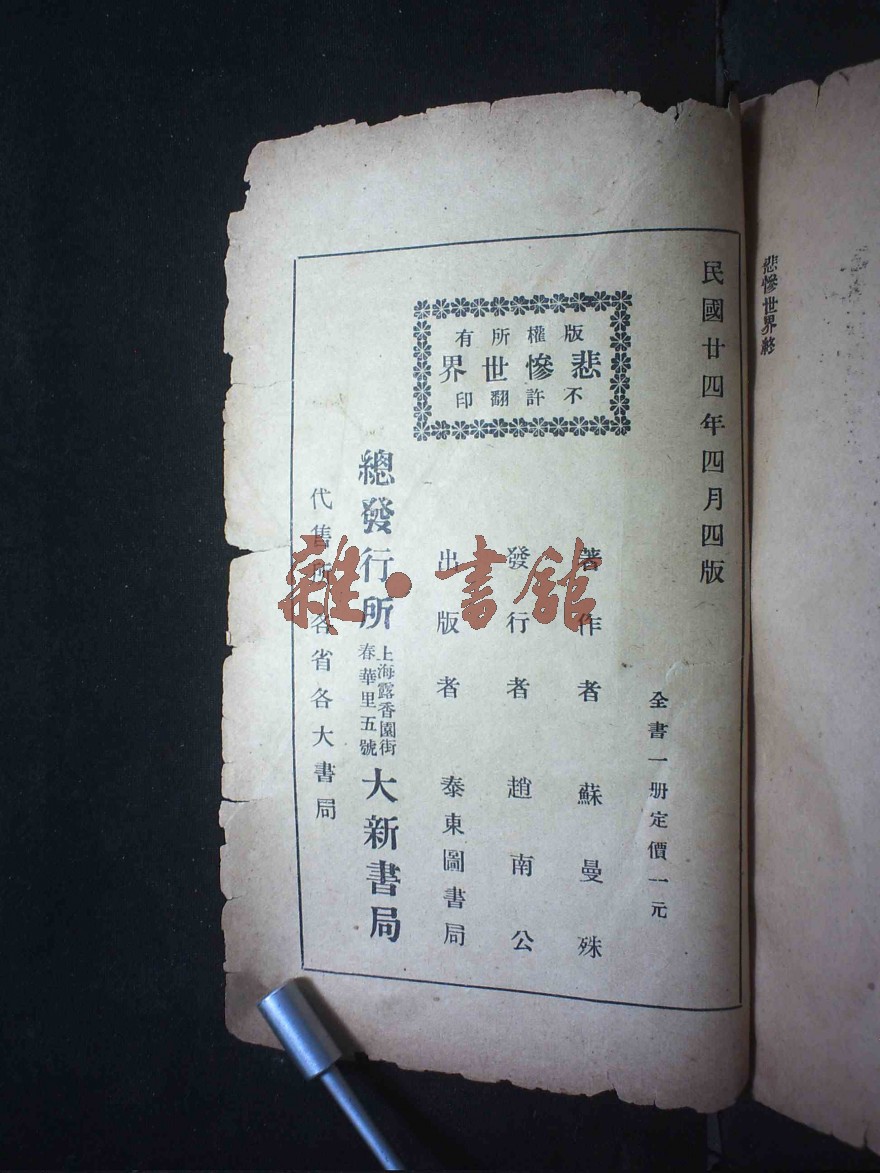 悲慘世界終
民國廿四年四月四版
全書一册定價一元
版權所有
悲慘世界
不許翻印
著作者 蘇曼殊
發行者 趙南公
出版者 泰東圖書局
總發行所 上海露香園街春華里五號 大新書局
代售所 各省各大書局
雜·書館